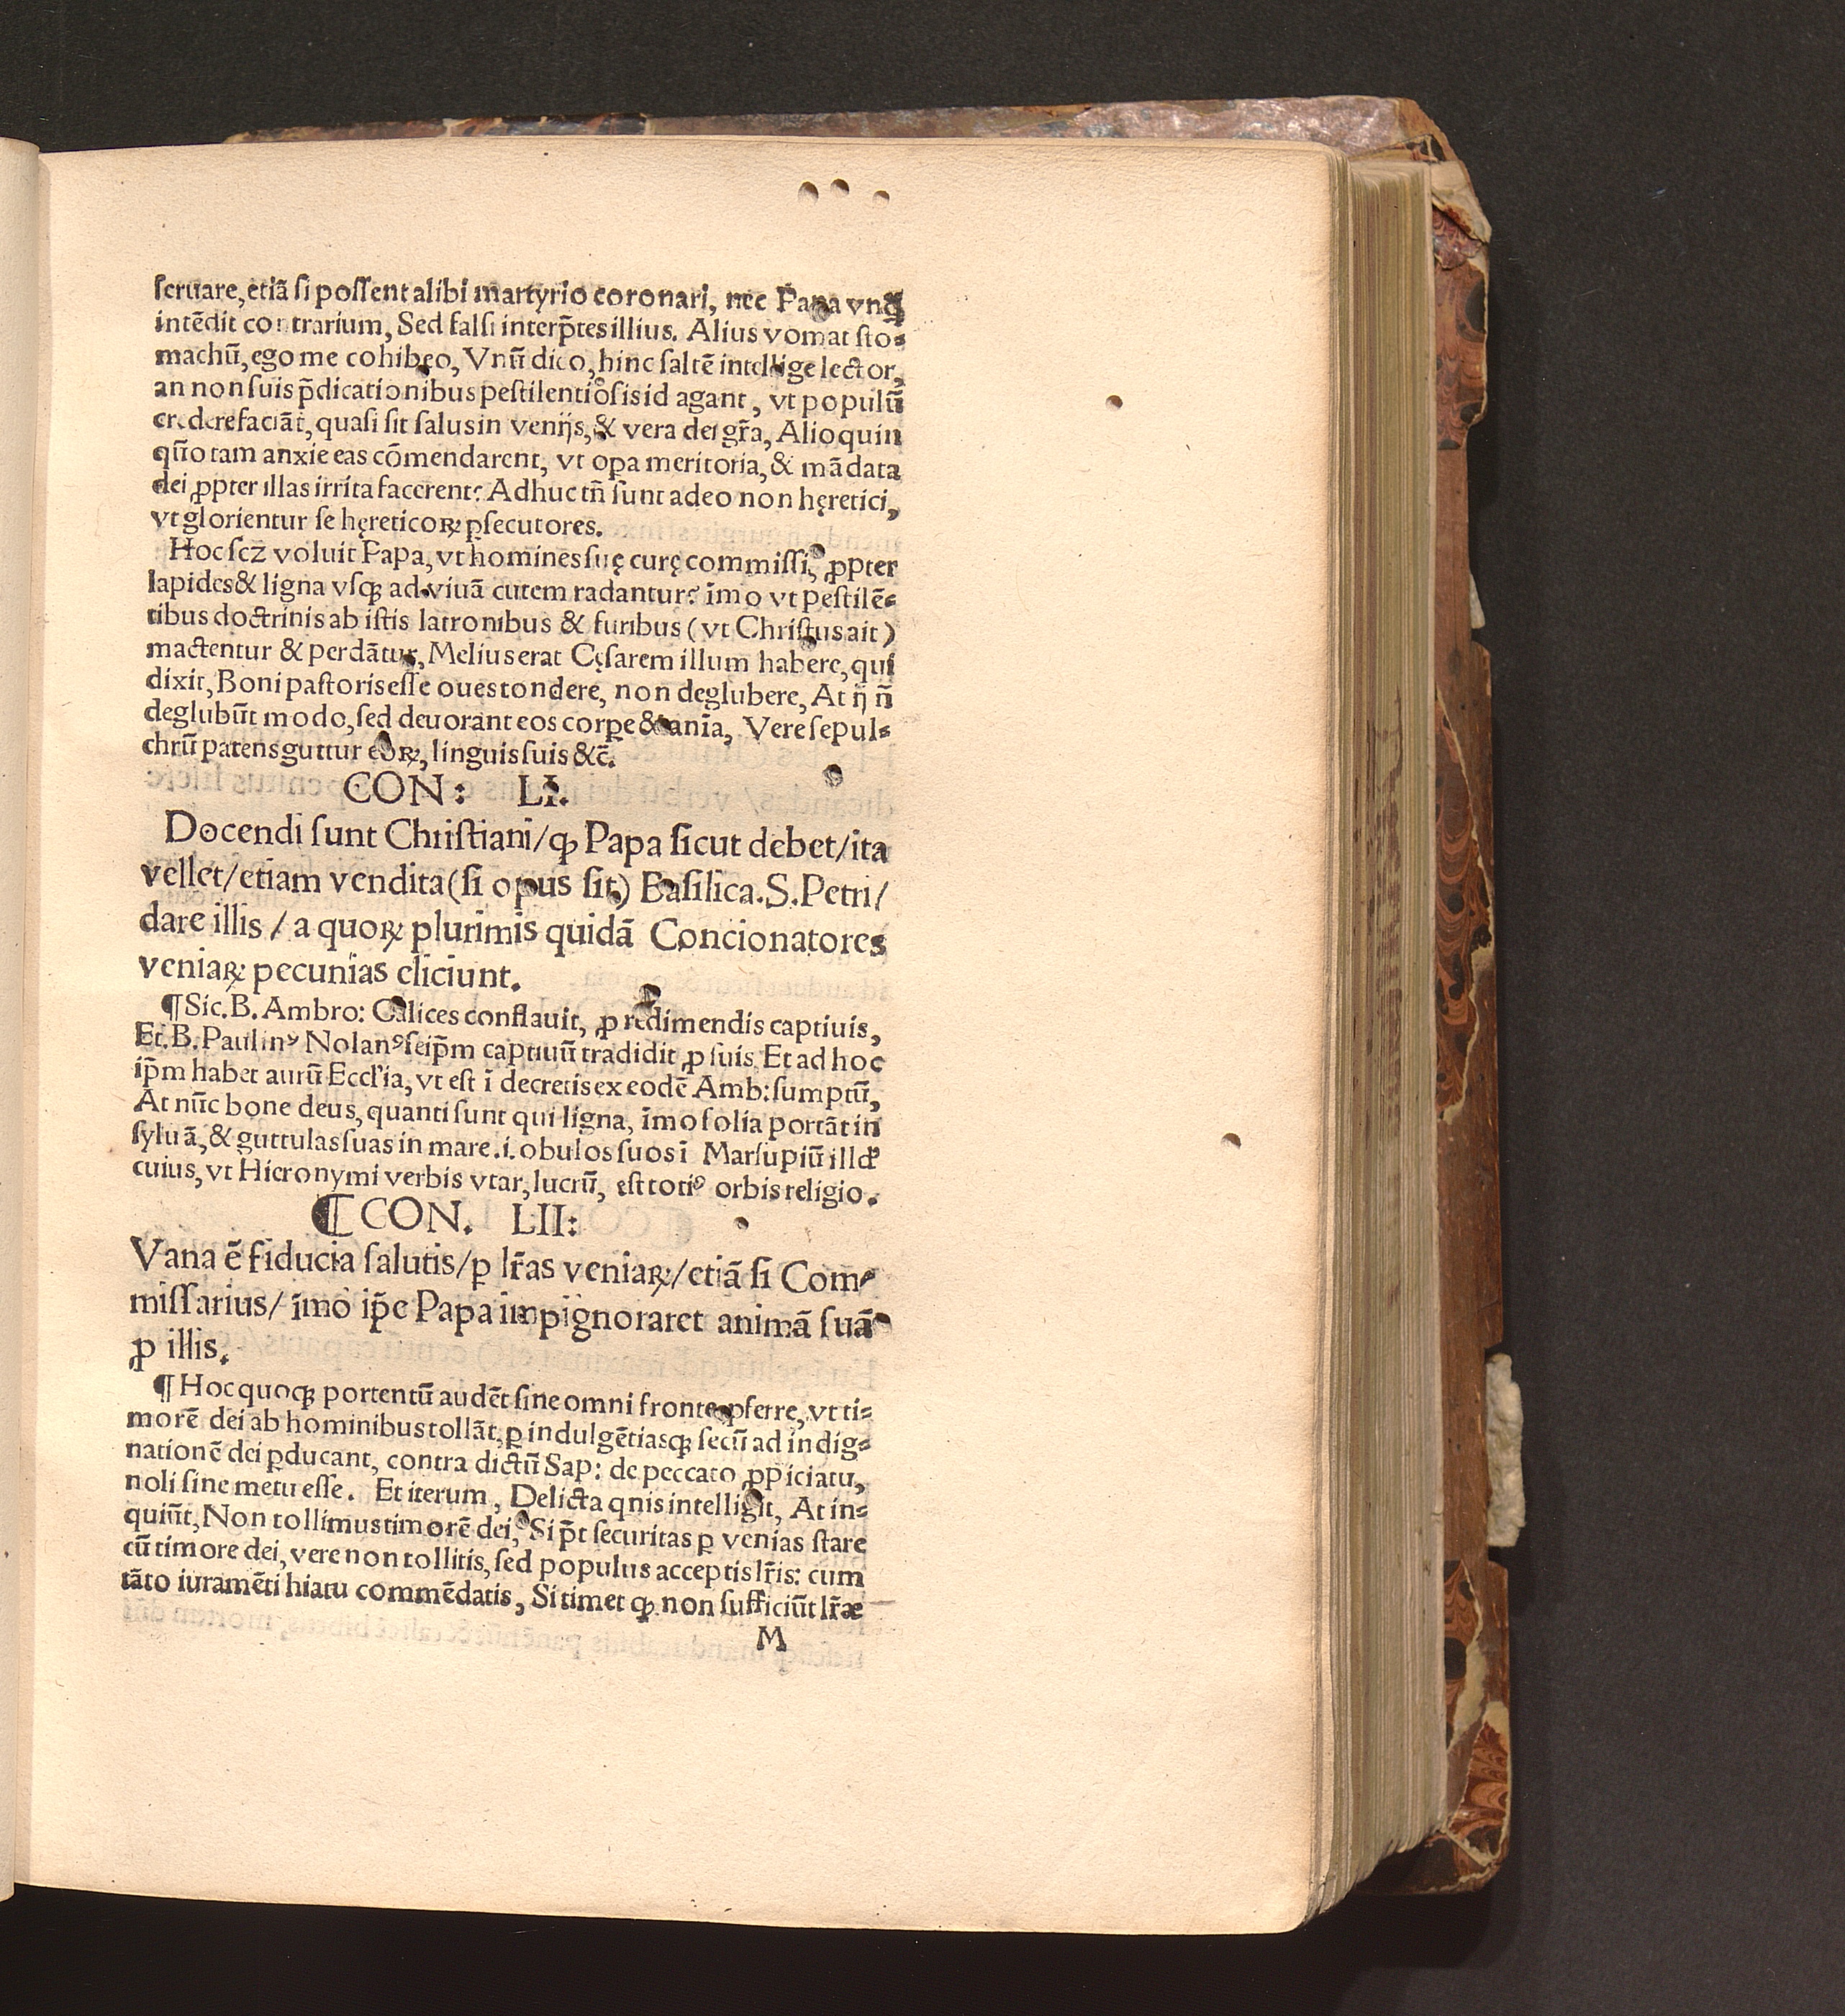 ſeruare, etiā ſi poſſent alibi martyrio coronari, nec Papa vnꝗ̃
intēdit contrarium, Sed falſi interp̄tes illius. Alius vomat ſto⸗
machū, ego me cohibeo, Vnū dico, hinc ſaltē intellige lector,
an non ſuis p̄dicationibus peſtilentioſis id agant, vt populū
credere faciāt, quaſi ſit ſalus in venijs, & vera dei gr̄a, Alioquin
qūo tam anxie eas cōmendarent, vt oꝑa meritoria, & mādata
dei ꝓpter illas irrita facerent? Adhuc tñ ſunt adeo non hęretici,
vt glorientur ſe hęreticoꝝ ꝑſecutores.
Hoc ſcꝫ voluit Papa, vt homines ſuę curę commiſſi, ꝓpter
lapides & ligna vſqꝫ ad viuā cutem radantur? īmo vt peſtilē⸗
tibus doctrinis ab iſtis latronibus & furibus (vt Chriſtus ait)
mactentur & perdātur, Melius erat Cęſarem illum habere, qui
dixit, Boni paſtoris eſſe oues tondere, non deglubere, At ij ñ
deglubūt modo, ſed deuorant eos corꝑe & anīa, Vere ſepul⸗
chrū patens guttur eoꝝ, linguis ſuis &c̄.
CON: LI.
Docendi ſunt Chriſtiani/ ꝙ Papa ſicut debet/ ita
vellet/ etiam vendita (ſi opus ſit) Baſilica. S. Petri/
dare illis / a quoꝝ plurimis quidā Concionatores
veniaꝝ pecunias eliciunt.
¶ Sic. B. Ambro: Calices conflauit, ꝓ redimendis captiuis,
Et. B. Paulinꝰ Nolanꝰ ſeip̄m captiuū tradidit ꝓ ſuis Et ad hoc
ip̄m habet aurū Eccl'ia, vt eſt ī decretis ex eodē Amb: ſumptū,
At nūc bone deus, quanti ſunt qui ligna, īmo folia portāt in
ſyluā, & guttulas ſuas in mare .i. obulos ſuos ī Marſupiū illd'
cuius, vt Hieronymi verbis vtar, lucrū, eſt totiꝰ orbis religio.
¶ CON. LII:
Vana ē fiducia ſalutis/ ꝑ lr̄as veniaꝝ/ etiā ſi Com⸗
miſſarius/ īmo ip̄e Papa impignoraret animā ſuā
ꝓ illis.
¶ Hoc quoqꝫ portentū audēt ſine omni fronte ꝓferre, vt ti⸗
morē dei ab hominibus tollāt, ꝑ indulgētiasqꝫ ſecū ad indig⸗
nationē dei ꝑducant, contra dictū Sap: de peccato ꝓpiciatu,
noli ſine metu eſſe. Et iterum, Delicta qnis intelligit, At in⸗
quiūt, Non tollimus timorē dei, Si p̄t ſecuritas ꝑ venias ſtare
cū timore dei, vere non tollitis, ſed populus acceptis lr̄is: cum
tāto iuramēti hiatu commēdatis, Si timet ꝙ non ſufficiūt lr̄æ
M